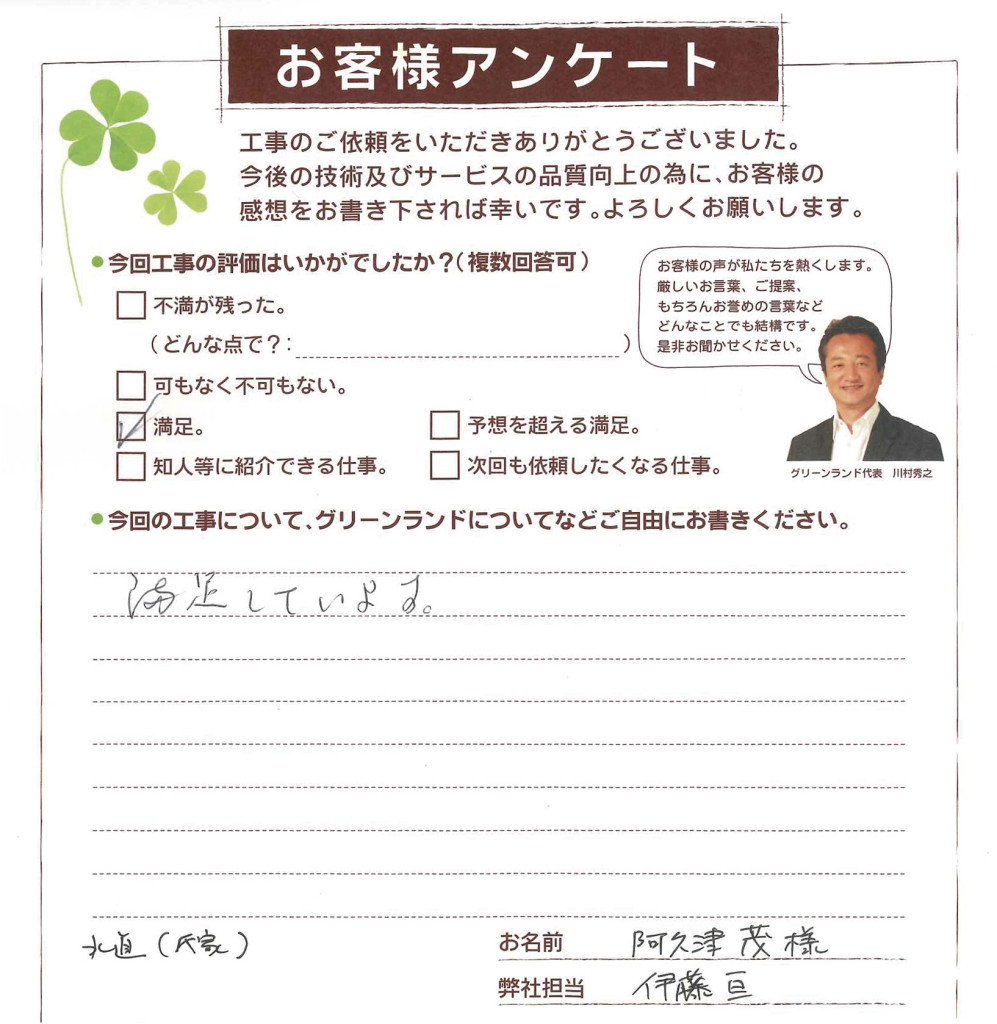 お客様アンケート
工事のご依頼をいただきありがとうございました。
今後の技術及びサービスの品質向上の為に、お客様の
感想をお書き下されば幸いです。よろしくお願いします。
●今回工事の評価はいかがでしたか？(複数回答可)
不満が残った。
(どんな点で？: )
可もなく不可もない。
満足。
予想を超える満足。
知人等に紹介できる仕事。
次回も依頼したくなる仕事。
お客様の声が私たちを熱くします。
厳しいお言葉、ご提案、
もちろんお誉めの言葉など
どんなことでも結構です。
是非お聞かせください。
グリーンランド代表 川村秀之
●今回の工事について、グリーンランドについてなどご自由にお書きください。
満足しています。
(氏家)
お名前 阿久津 茂 様
弊社担当 伊藤 亘